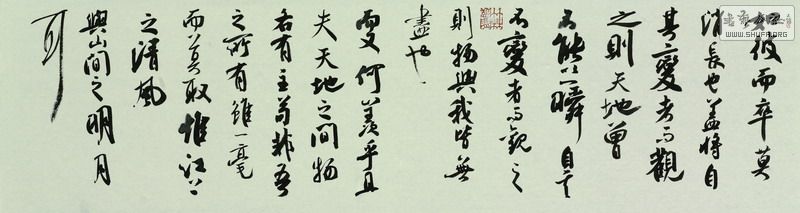 如彼而卒莫
消長也蓋將自
其變者而觀
之則天地曾
不能以一瞬自其
不變者而觀之
則物與我皆無
盡也
而又何羨乎且
夫天地之間物
各有主苟非吾
之所有雖一毫
而莫取惟江上
之清風
與山間之明月
耳
WWW.SHUFA.ORG